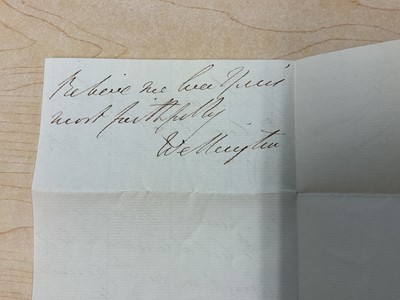 Believe me ever Yours
most faithfully
Wellington